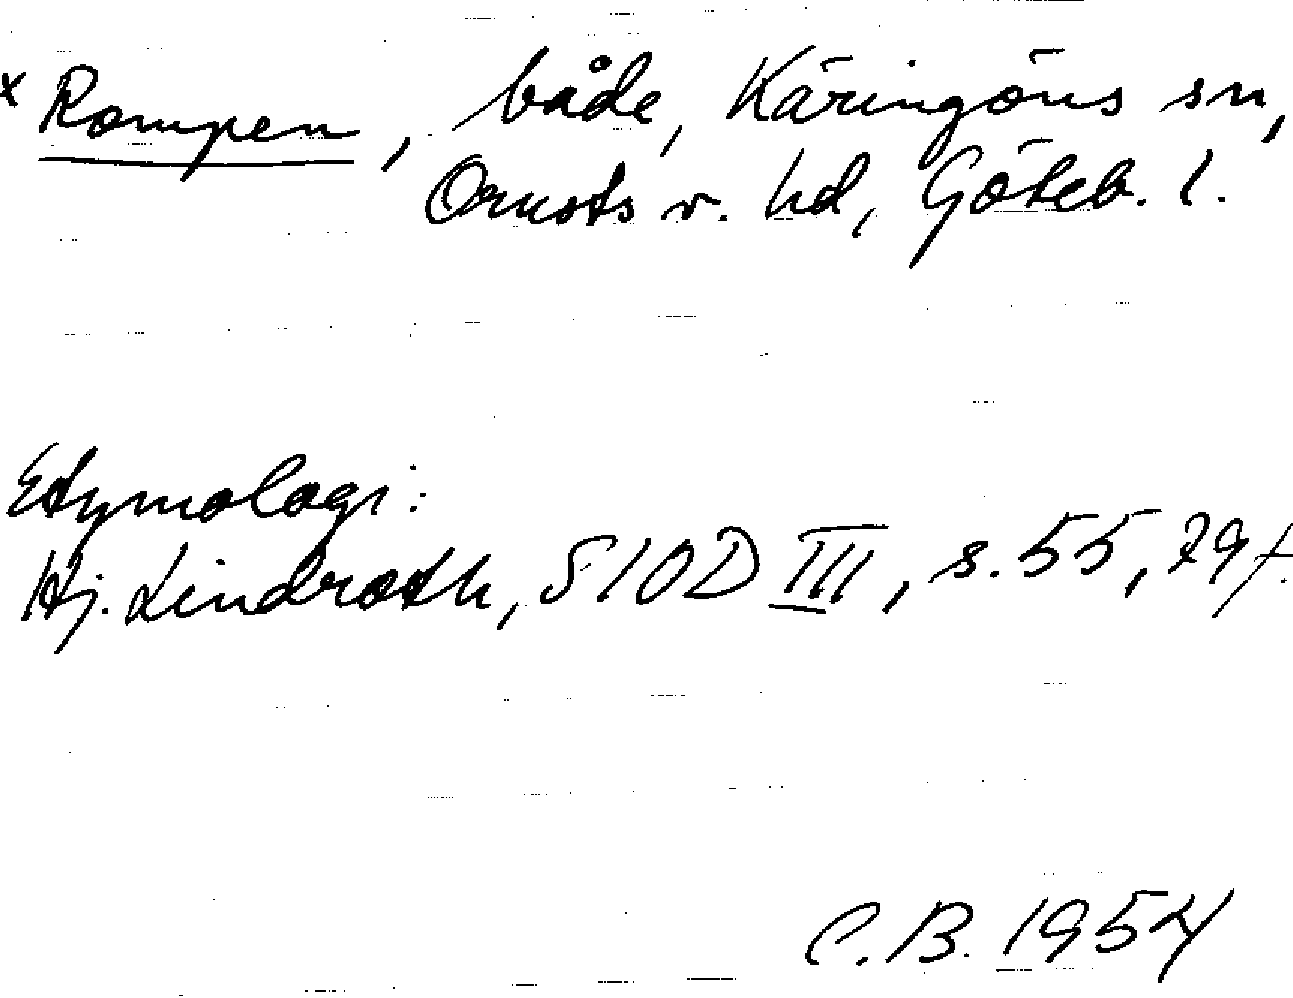 x Rompen, både, Käringöns sn,
Orusts v. hd, Göteb. l.
Etymologi:
Hj. Lindroth, SIOD III, s. 55, 79 f.
C.B. 1954